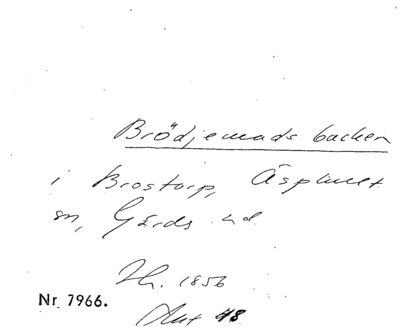 Brödjemads backen
i Brostorp, Äsphult
sn, Gärds hd.
Th. 1856
Nr 7966.
Aut 48